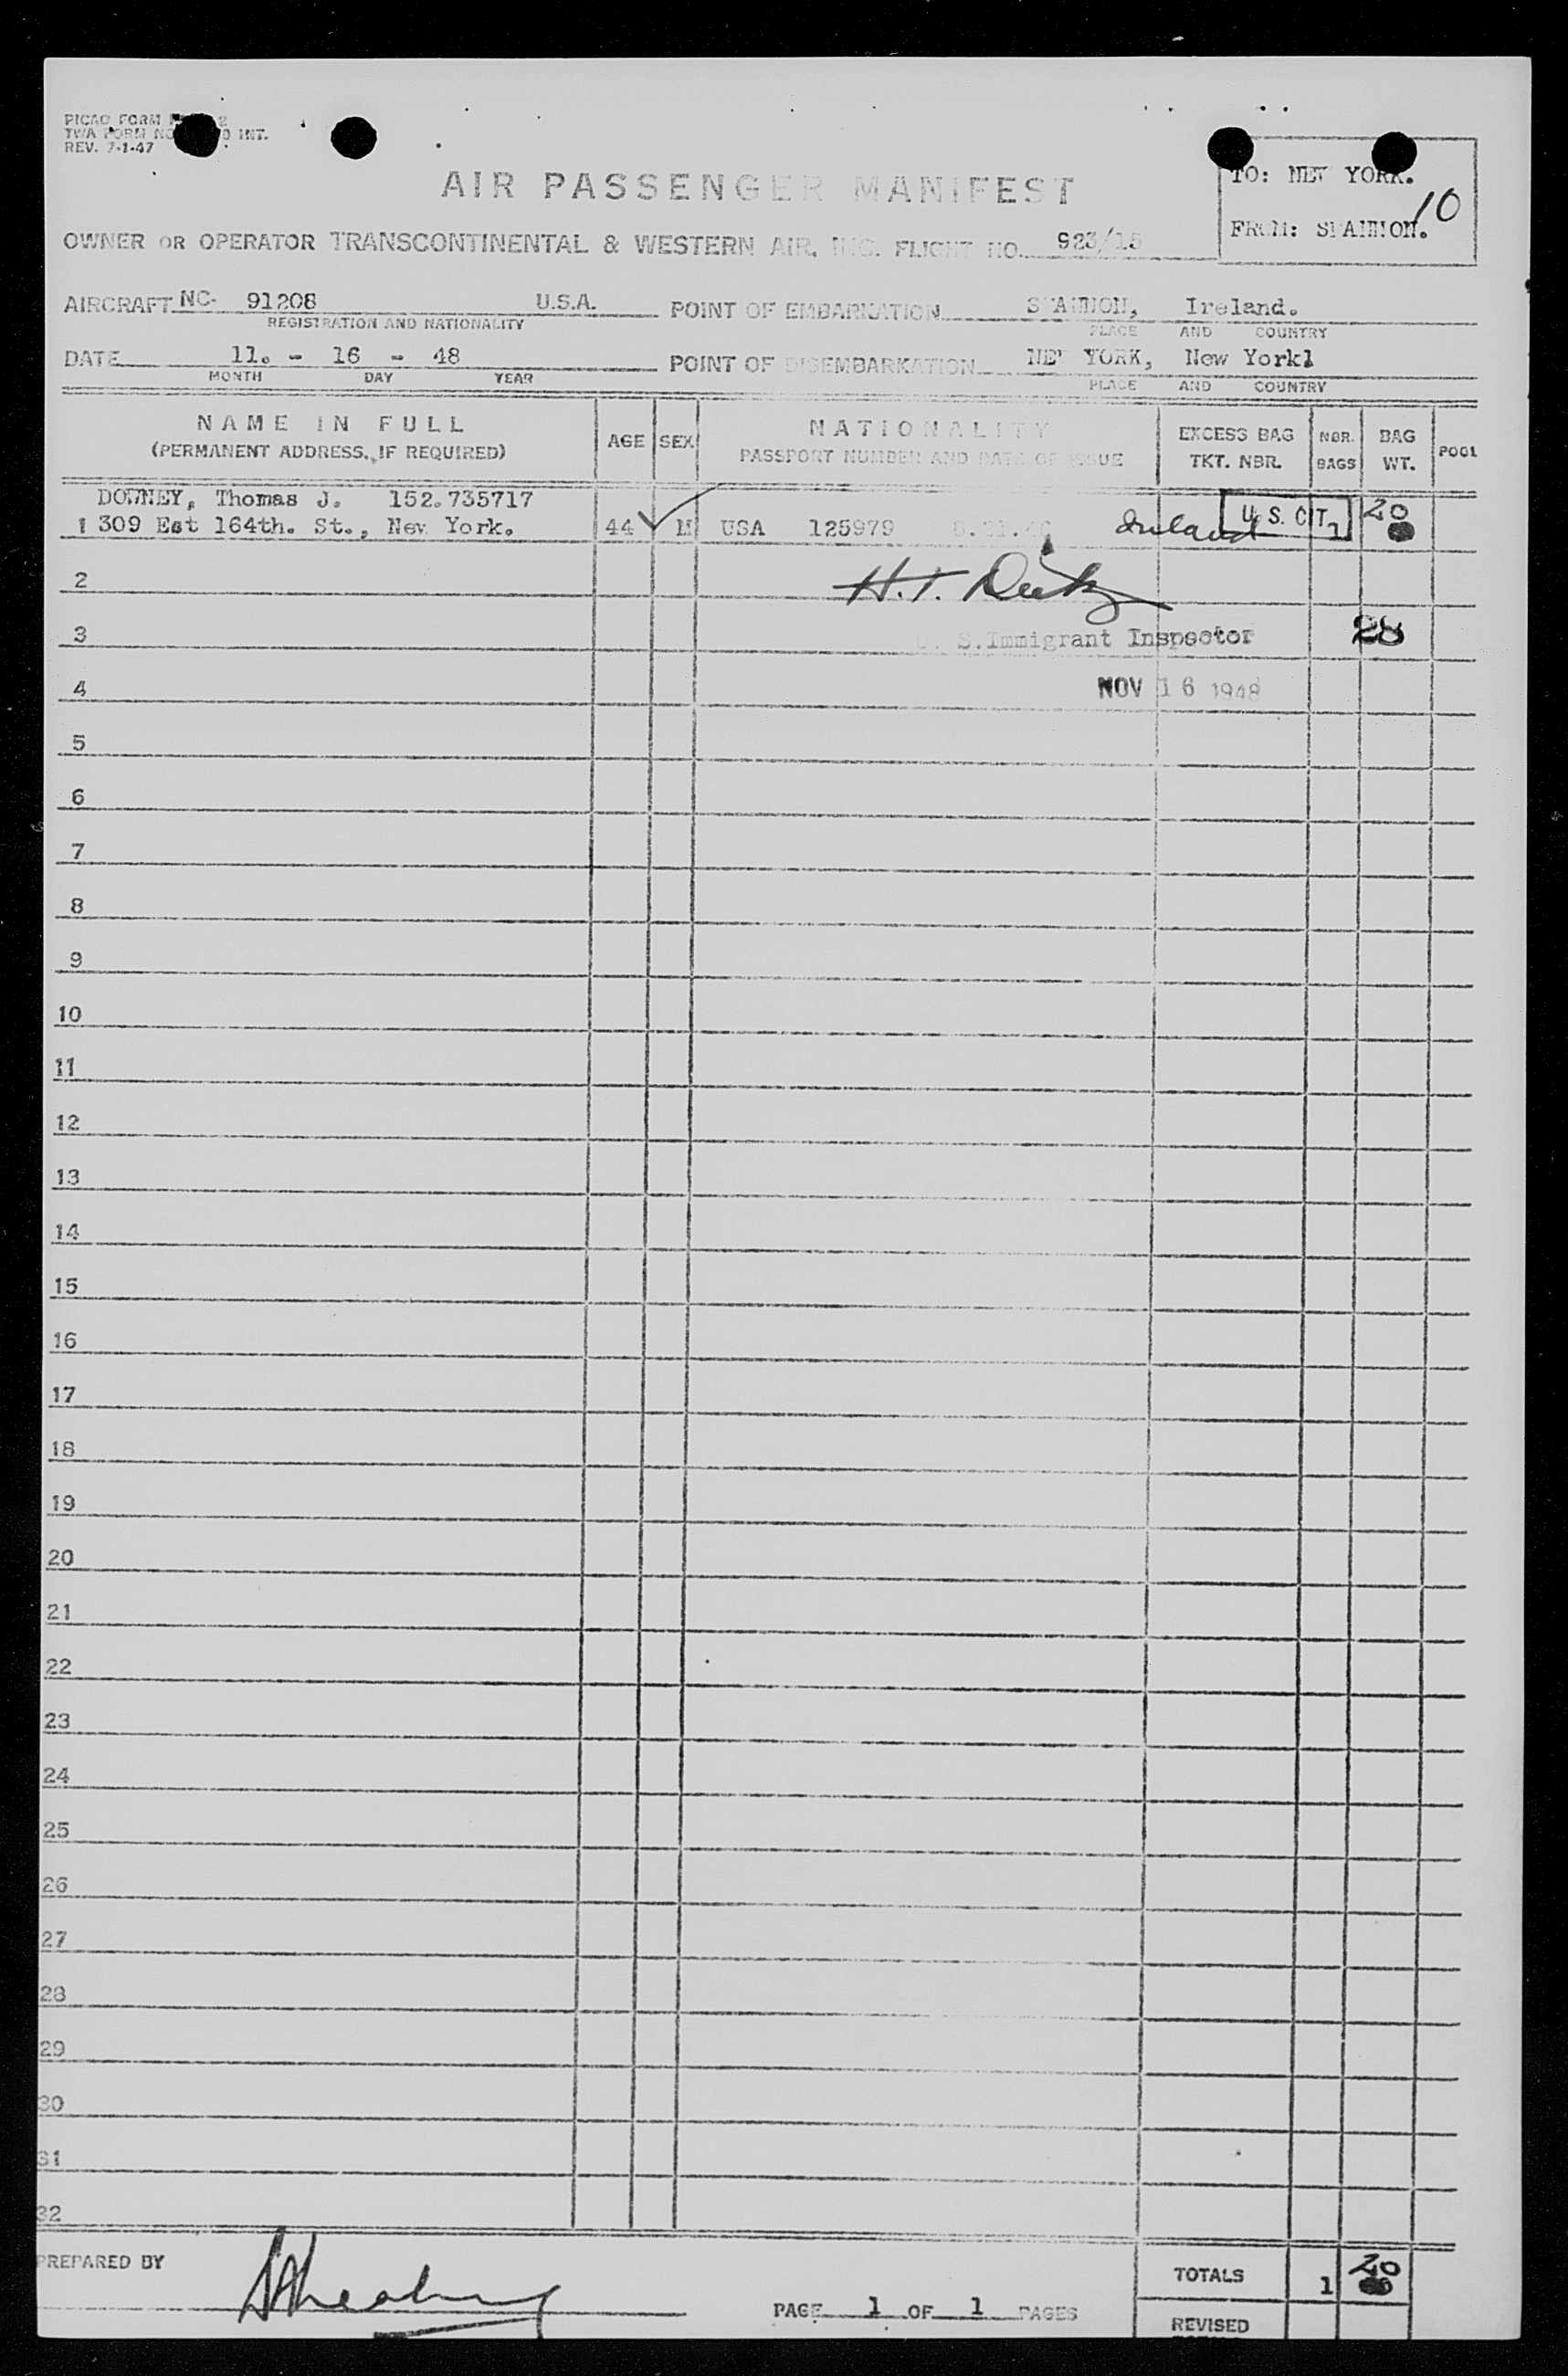 PICAO FORM
TWA FORM NO INT.
REV. 7-1-47
AIR PASSENGER MANIFEST
TO: NEW YORK.
10
FROM: SHANNON.
OWNER OR OPERATOR TRANSCONTINENTAL & WESTERN AIR, INC. FLIGHT NO. 923/15
AIRCRAFT NC- 91208 U.S.A. POINT OF EMBARKATION SHANNON, Ireland.
REGISTRATION AND NATIONALITY PLACE AND COUNTRY
DATE 11. - 16 - 48 POINT OF DISEMBARKATION NEW YORK, New York1
MONTH DAY YEAR PLACE AND COUNTRY
NAME IN FULL AGE SEX NATIONALITY EXCESS BAG NBR. BAG POOL
(PERMANENT ADDRESS, IF REQUIRED) PASSPORT NUMBER AND DATE OF ISSUE TKT. NBR. BAGS WT.
DOWNEY, Thomas J. 152.735717 U. S. CIT. 20
1 309 Est 164th. St., New York. 44 M USA 125979 Ireland 1
2 H.T.
3 U. S. Immigrant Inspector 28
4 NOV 16 1948
5
6
7
8
9
10
11
12
13
14
15
16
17
18
19
20
21
22
23
24
25
26
27
28
29
30
31
32
PREPARED BY TOTALS 1 20
PAGE 1 OF 1 PAGES
REVISED